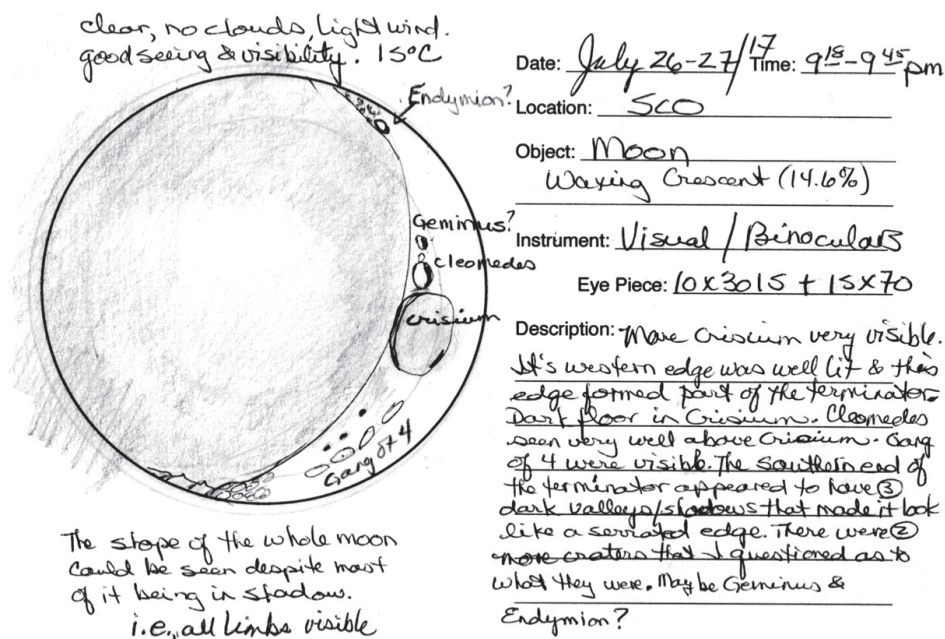 clear, no clouds, light wind.
good seeing & visibility. 15°C
Endymion?
Geminus?
Cleomedes
Crisium
Gang of 4
The shape of the whole moon
could be seen despite most
of it being in shadow.
i.e., all limbs visible
Date: July 26-27/17 Time: 9 18 - 9 45 pm
Location: SCO
Object: Moon
Waxing Crescent (14.6%)
Instrument: Visual / Binoculars
Eye Piece: 10x30IS + 15x70
Description: Mare Crisium very visible.
It's western edge was well lit & this
edge formed part of the terminator.
Dark floor in Crisium. Cleomedes
seen very well above Crisium. Gang
of 4 were visible. The southern end of
the terminator appeared to have ③
dark valleys/shadows that made it look
like a serrated edge. There were ②
more craters that I questioned as to
what they were. Maybe Geminus &
Endymion?